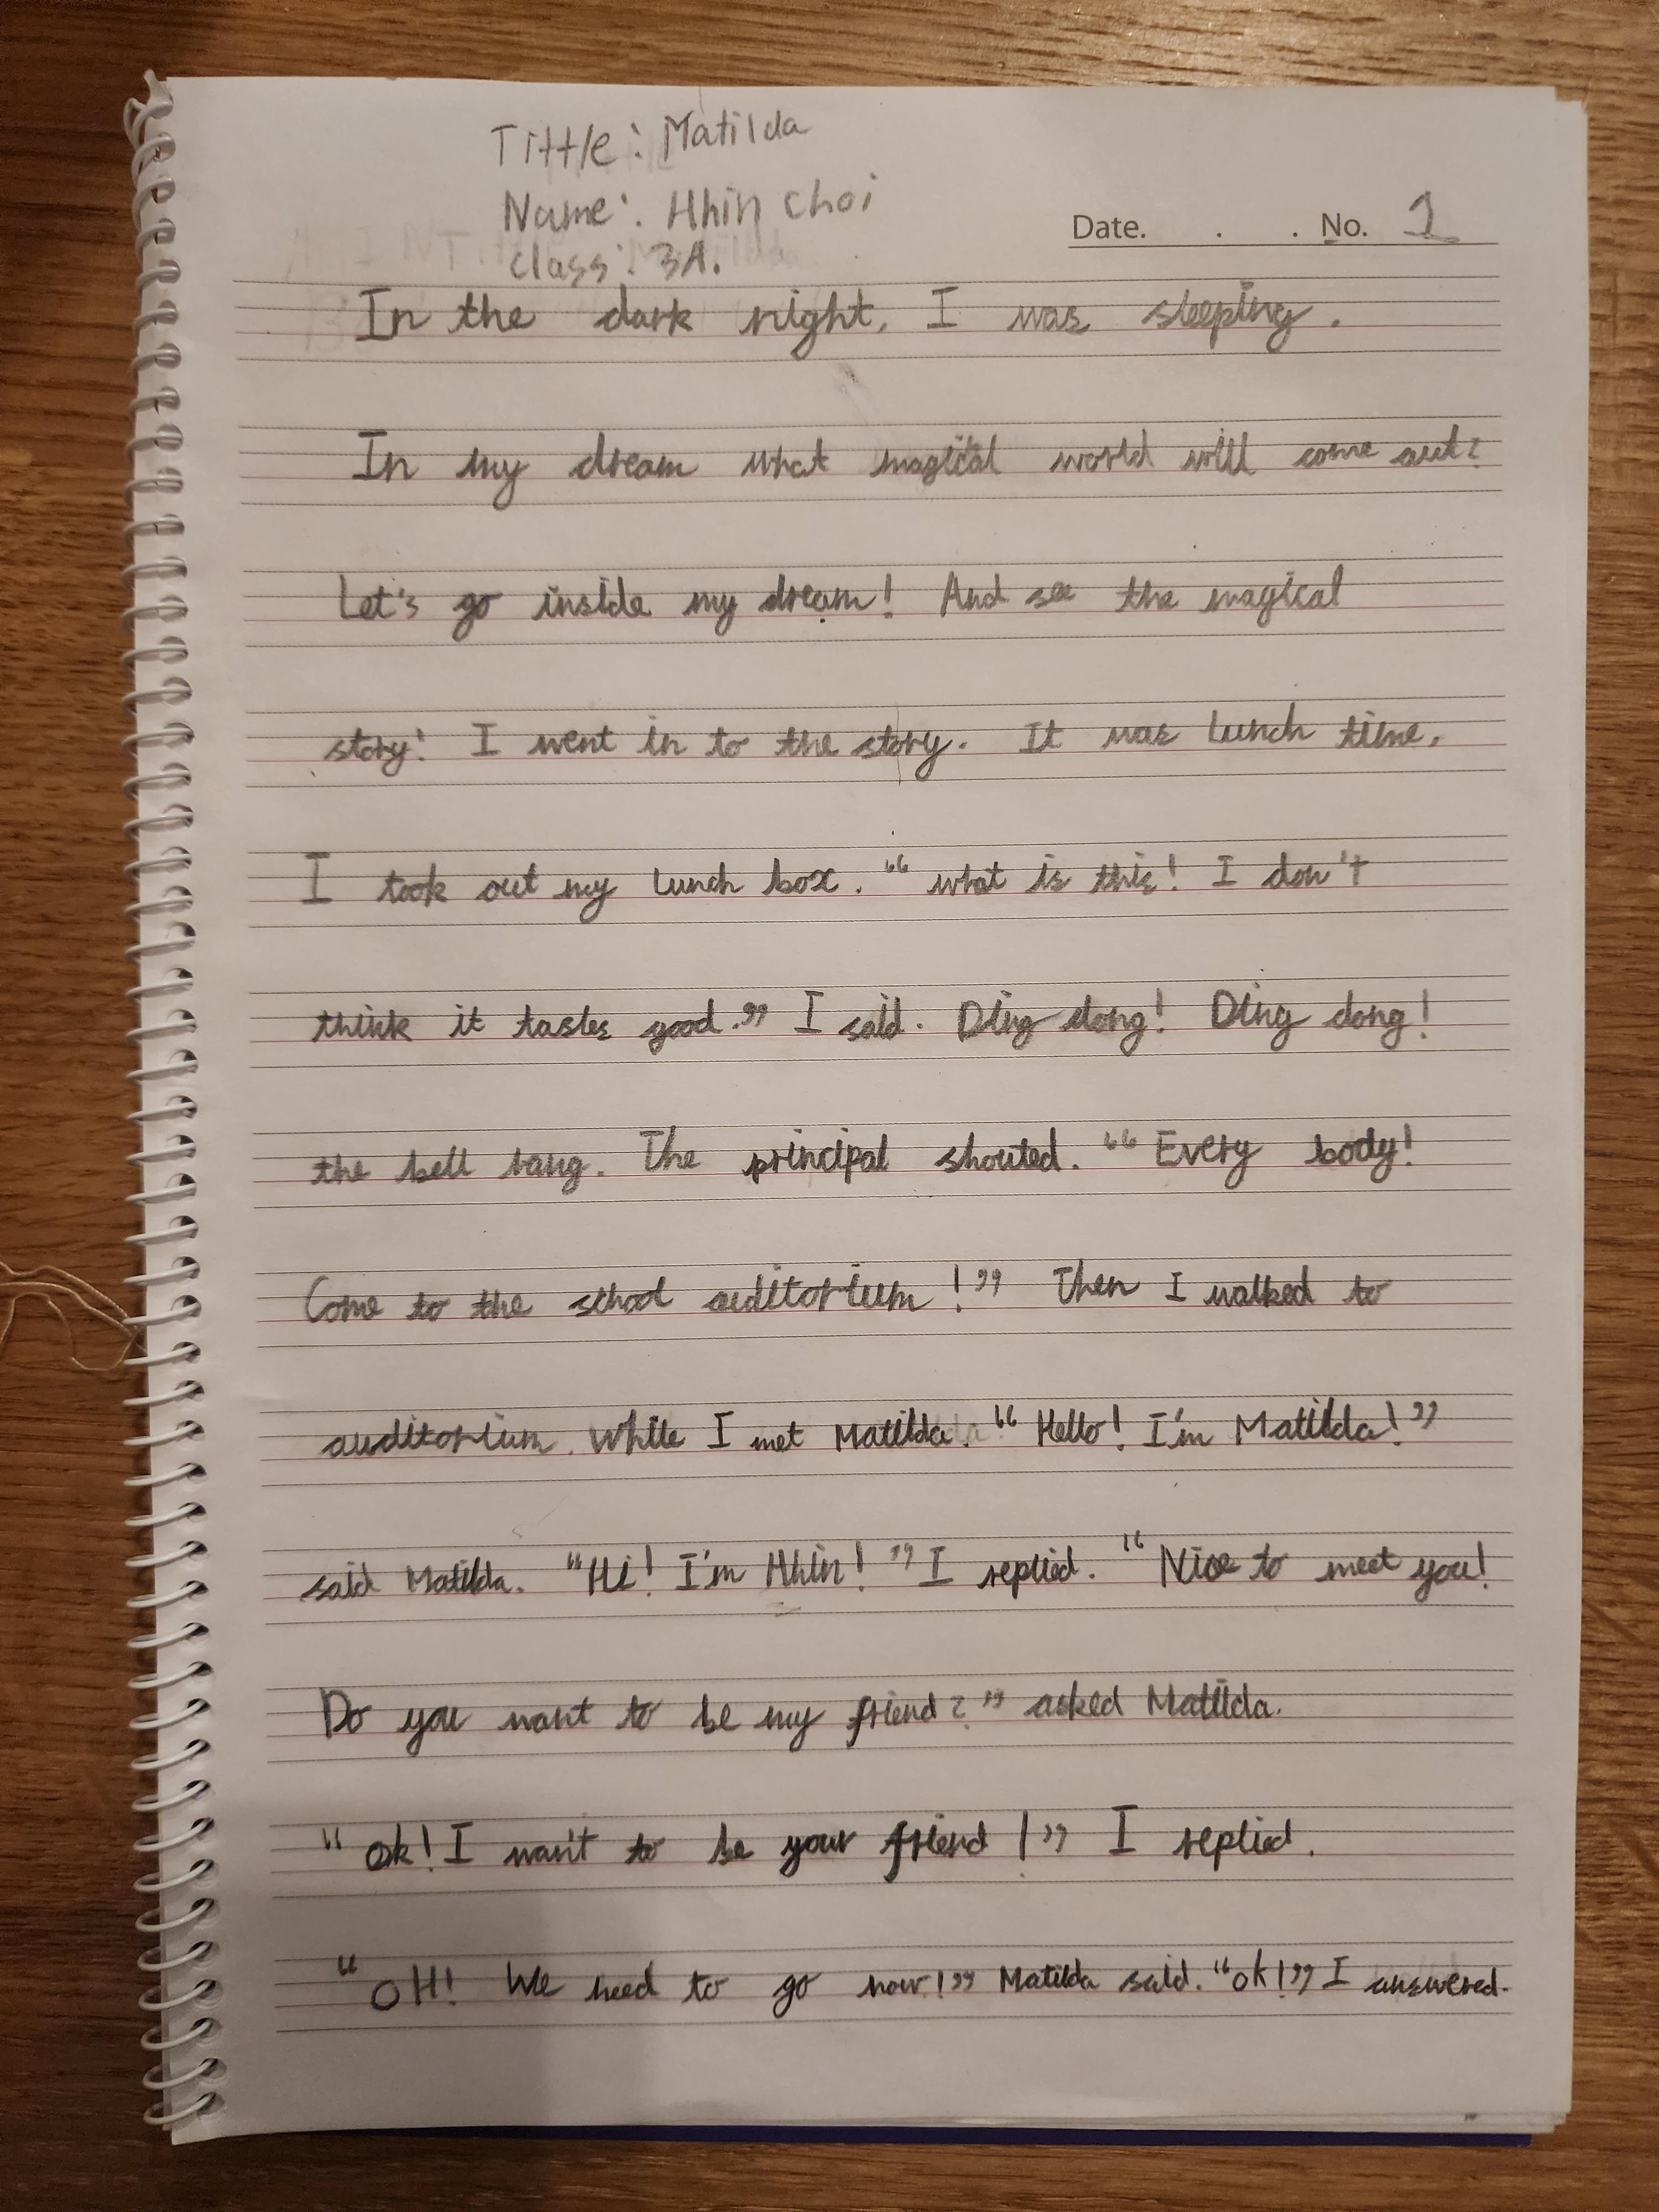 Tittle: Matilda
Name: Hhin choi
Date. . . No. 1
class: 3A.
In the dark night, I was sleeping.
In my dream what magical world will come out?
Let's go inside my dream! And see the magical
story! I went in to the story. It was lunch time.
I took out my lunch box. "what is this! I don't
think it tastes good." I said. Ding dong! Ding dong!
the bell rang. The principal shouted. "Every body!
Come to the school auditorium!" Then I walked to
auditorium. While I met Matilda. "Hello! I'm Matilda!"
said Matilda. "Hi! I'm Hhin!" I replied. "Nice to meet you!
Do you want to be my friend?" asked Matilda.
"ok! I wan't to be your friend!" I replied.
"OH! We need to go now!" Matilda said. "ok!" I answered.